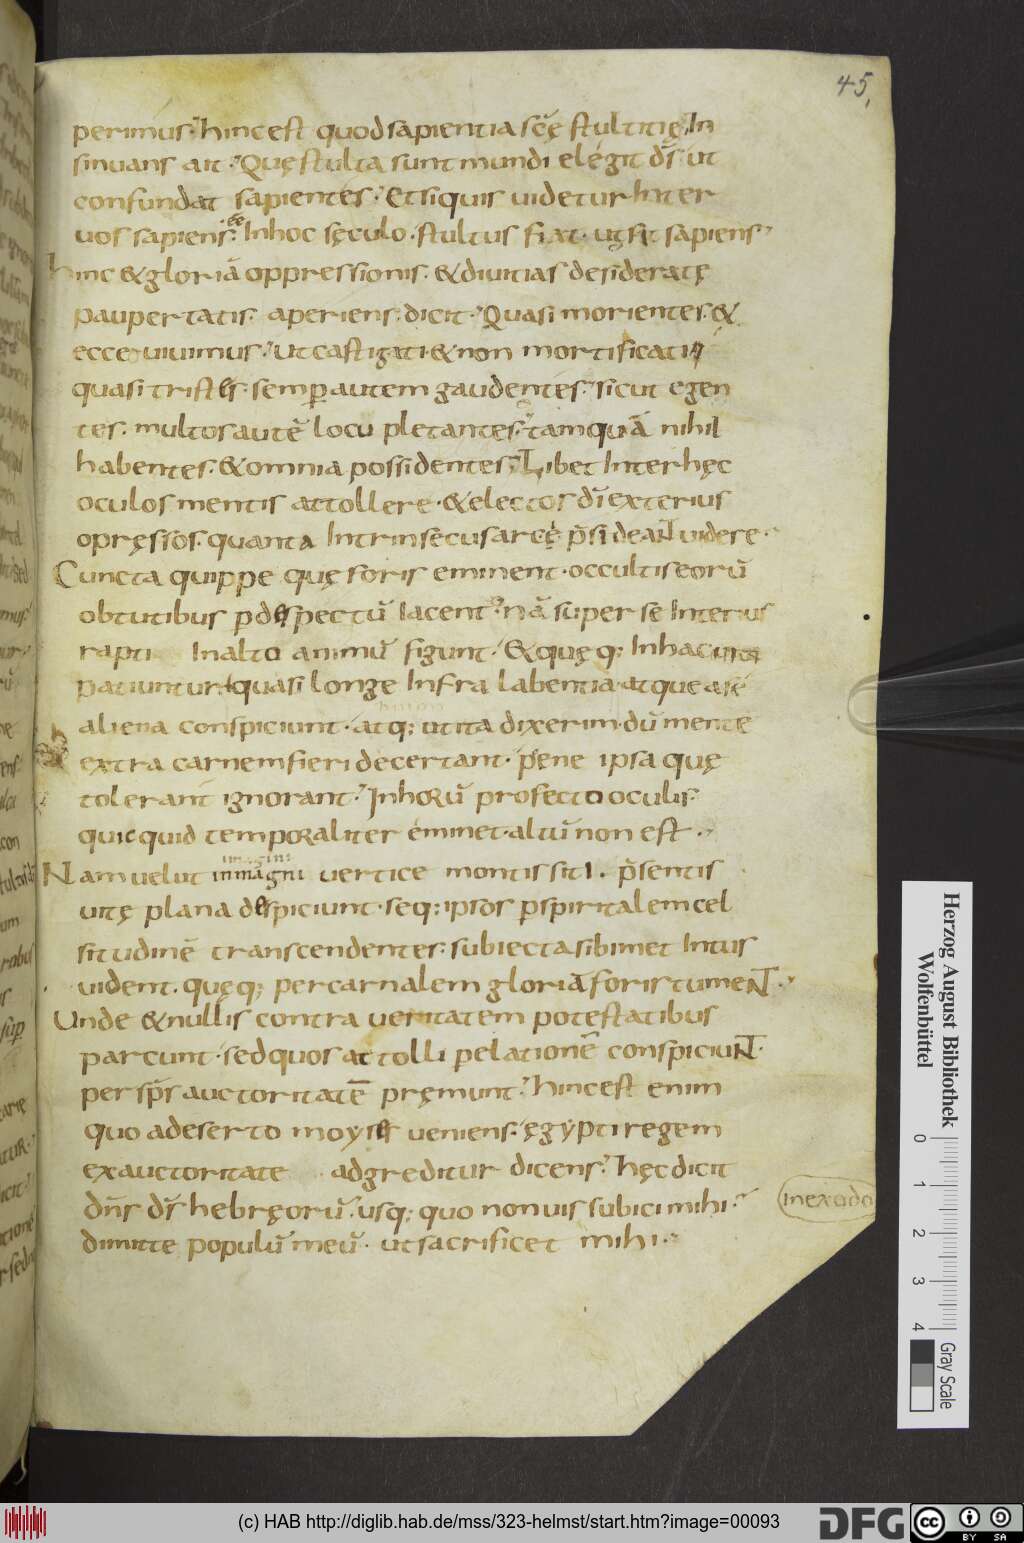 45,
perimus. hinc est quod sapientia scę stultitię In
sinuans ait. Quę stulta sunt mundi elegit d̄s ut
confundat sapientes. Et si quis uidetur Inter
ee
uos sapiens. Inhoc sęculo. stultus fiat. ut sit sapiens
hinc & gloriā oppressionis. & diuitias desideratę
paupertatis. aperiens. dicit. Quasi morientes. &
ecce uiuimus. ut castigati. & non mortificati
quasi tristes. semp̱ autem gaudentes. sicut egen
tes. multos autē locupletantes. tamquā nihil
habentes. & omnia possidentes. Libet Inter hęc
oculos mentis attollere. & electos d̄i exterius
opręssos. quanta Intrinsecus arcę p̄sideaNT uidere.
Cuncta quippe quę foris eminent. occultis eorū
obtutibus p̱ despectū Iacent. nā super se Interius
rapti Inalto animū figunt. & quęq; Inhac uita
patiuntur quasi longe Infra labentia atque a se
aliena conspiciunt. atq; ut ita dixerim. dū mente
extra carnem fieri decertant. pęne ipsa quę
tolerant ignorant. Inhorū profecto oculis.
quicquid temporaliter eminet. altū non est.
Nam uelut in magni uertice montis siti. p̄sentis
uitę plana despiciunt. seq; ipsos p̱ spiritalem cel
situdinē transcendentes. subiecta sibimet Intus
uident. quęq; per carnalem gloriā foris tumeNT.
Unde & nullis contra ueritatem potestatibus
parcunt. sed quos attolli p̱ elationē conspiciuNT.
per sp̄s auctoritatē pręmunt. hinc est enim
quo a deserto moyses ueniens. ęgypti regem
ex auctoritate adgreditur dicens. hęc dicit
dn̄s d̄s hebręorū. usq; quo non uis subici mihi.
inexodo
dimitte populū meū. ut sacrificet mihi.
Herzog August Bibliothek
Wolfenbüttel
0 1 2 3 4
Gray Scale
(c) HAB http://diglib.hab.de/mss/323-helmst/start.htm?image=00093
DFG
cc BY SA